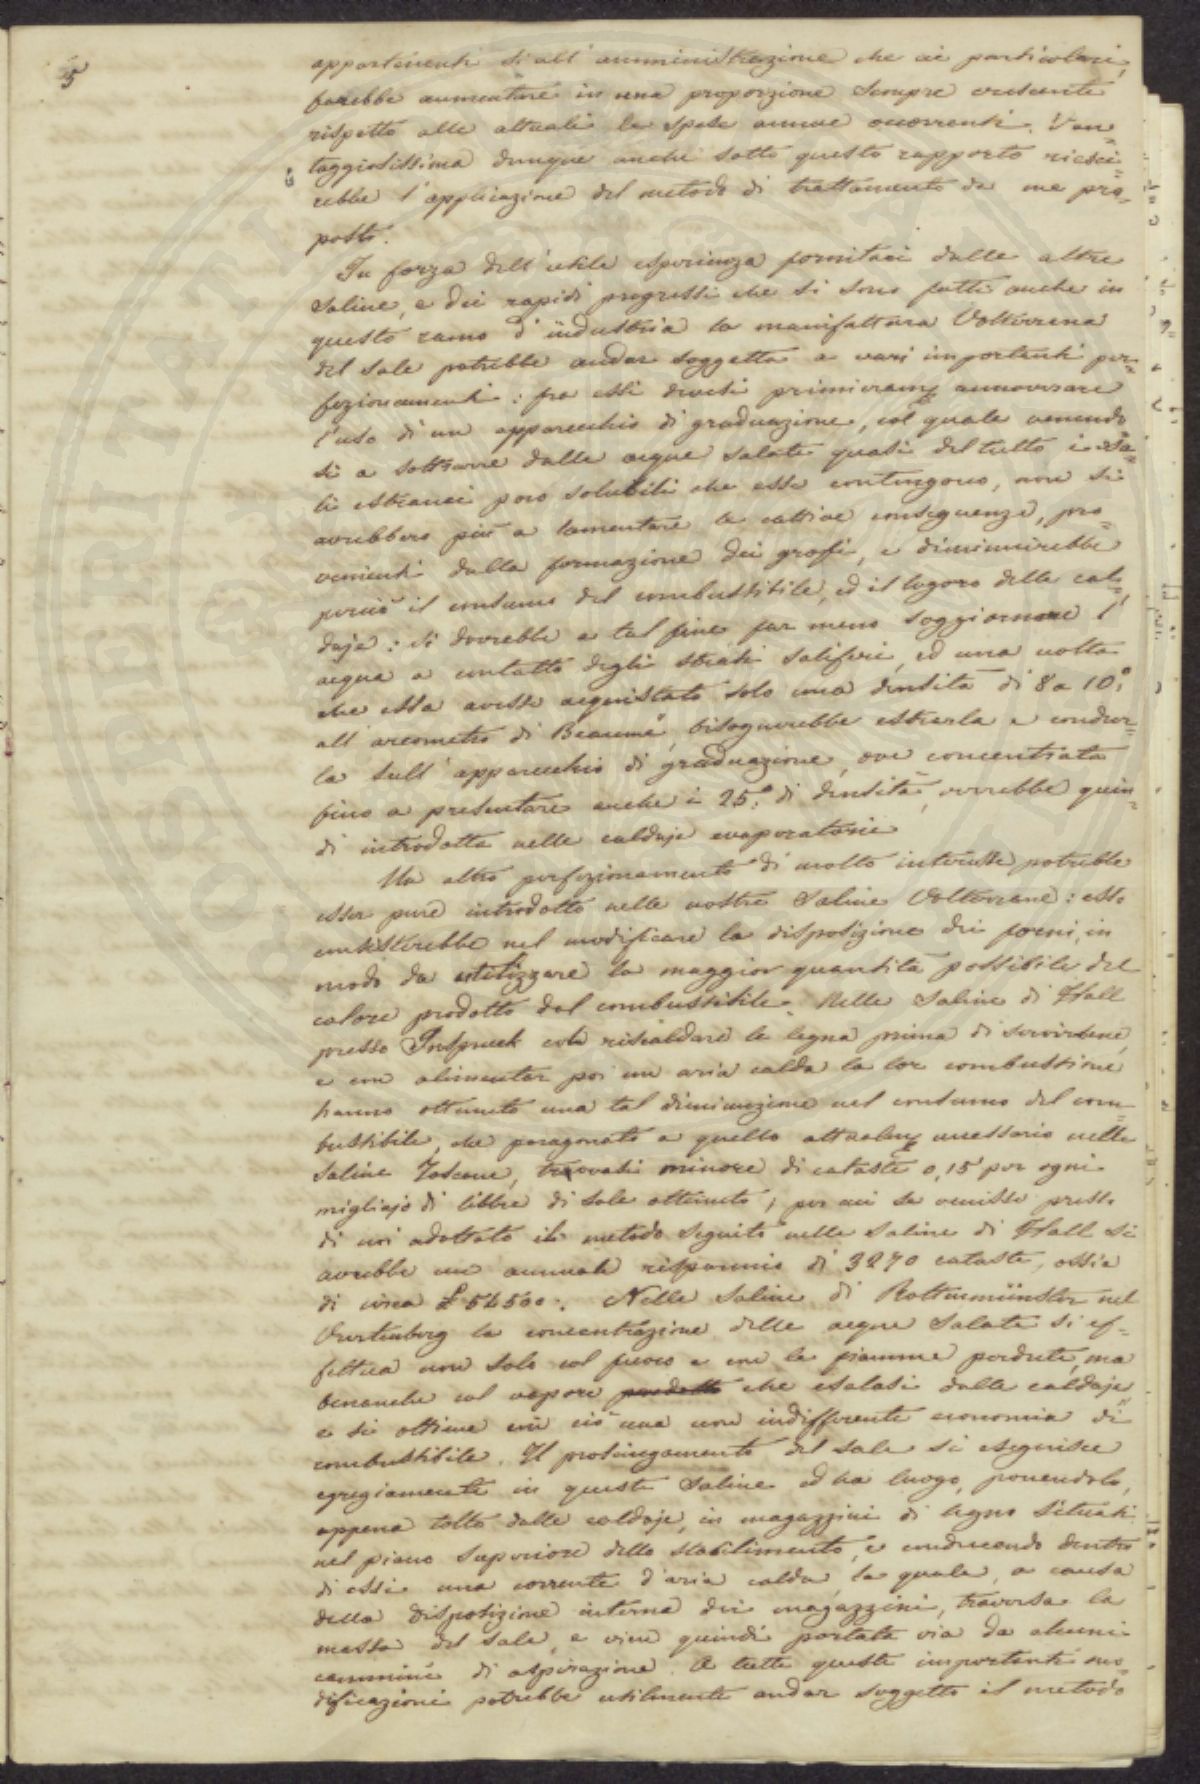 5
appartenenti sì all' amministrazione che ai particolari,
farebbe aumentare in una proporzione sempre crescente
rispetto alle attuali le spese annue occorrenti. Van=
taggiosissima dunque anche sotto questo rapporto riesci=
rebbe l'applicazione del metodo di trattamento da me pro=
posto.
In forza dell'utile esperienza fornitaci dalle altre
Saline, e dei rapidi progressi che si sono fatti anche in
questo ramo d'industria la manifattura Volterrana
del sale potrebbe andar soggetta a vari importanti per=
fezionamenti: fra essi devesi primieramẽ annoverare
l'uso di un apparecchio di graduazione, col quale venendo=
si a sottrarre dalle acque salate quasi del tutto i sa=
li estranei poco solubili che esse contengono, non si
avrebbero più a lamentare le cattive conseguenze, pro=
venienti dalla formazione dei grossi, e diminuirebbe
perciò il consumo del combustibile, ed il logoro delle cal=
daje: si dovrebbe a tal fine far meno soggiornare l'
acqua a contatto degli strati saliferi, ed una volta
che essa avesse acquistato solo una densità di 8 a 10.°
all'areometro di Beaumè, bisognerebbe estrarla e condur=
la sull'apparecchio di graduazione, ove concentrata
fino a presentare anche i 25.° di densità, verrebbe quin=
di introdotta nelle caldaje evaporatorie
Un altro perfezionamento di molto interesse potrebbe
esser pure introdotto nelle nostre Saline Volterrane: esso
consisterebbe nel modificare la disposizione dei forni, in
modo da utilizzare la maggior quantità possibile del
calore prodotto dal combustibile. Nelle Saline di Hall
presso Inspruck col riscaldare le legna prima di servirsene,
e con alimentar poi con aria calda la lor combustione
hanno ottenuto una tal diminuzione nel consumo del com=
bustibile, che paragonato a quello attualmẽ necessario nelle
Saline Toscane, trovasi minore di cataste 0,15 per ogni
migliajo di libbre di sale ottenuto; per cui se venisse presso
di noi adottato il metodo seguito nelle Saline di Hall si
avrebbe un annuale risparmio di 3270 cataste, ossia
di circa £ 54500. Nelle Saline di Rottenmünster nel
Vurtemberg la concentrazione delle acque salate si ef=
fettua non solo col fuoco e con le fiamme perdute, ma
benanche col vapore perduto che esalasi dalle caldaje,
e si ottiene con ciò una non indifferente economia di
combustibile. Il prosciugamento del sale si eseguisce
egregiamente in queste Saline ed ha luogo, ponendolo,
appena tolto dalle caldaje, in magazzini di legno situati
nel piano superiore dello stabilimento, e conducendo dentro
di essi una corrente d'aria calda, la quale, a causa
della disposizione interna dei magazzini, traversa la
massa del sale, e vien quindi portata via da alcuni
cammini di aspirazione. A tutte queste importanti mo=
dificazioni potrebbe utilmente andar soggetto il metodo